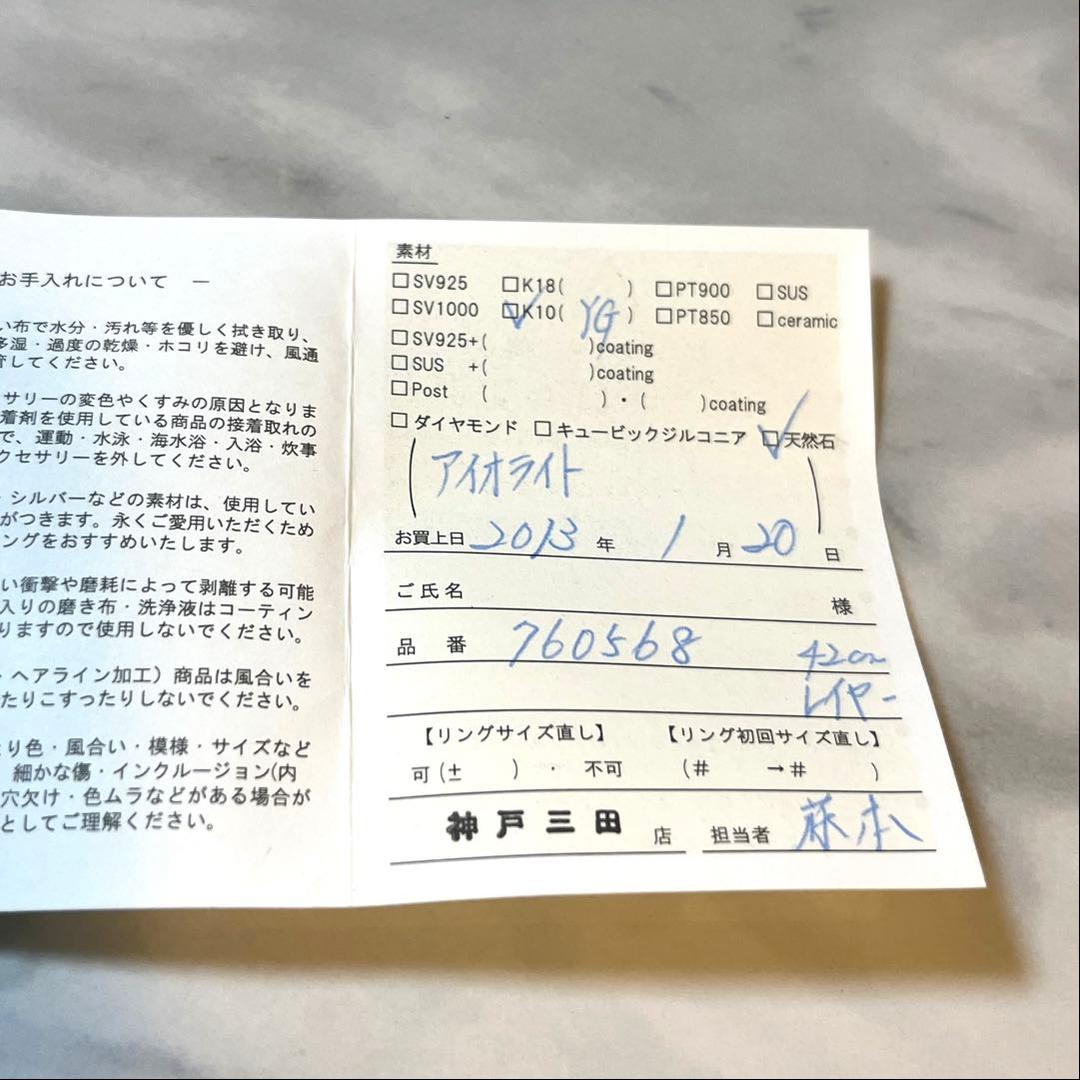 お手入れについて ー
い布で水分・汚れ等を優しく拭き取り、
多湿・過度の乾燥・ホコリを避け、風通
管してください。
サリーの変色やくすみの原因となりま
着剤を使用している商品の接着取れの
で、運動・水泳・海水浴・入浴・炊事
クセサリーを外してください。
・シルバーなどの素材は、使用してい
がつきます。永くご愛用いただくため
ングをおすすめいたします。
い衝撃や磨耗によって剥離する可能
入りの磨き布・洗浄液はコーティン
りますので使用しないでください。
・ヘアライン加工）商品は風合いを
たりこすったりしないでください。
より色・風合い・模様・サイズなど
細かな傷・インクルージョン(内
穴欠け・色ムラなどがある場合が
としてご理解ください。
素材
□SV925 □K18( ) □PT900 □SUS
□SV1000 ☑K10( YG ) □PT850 □ceramic
□SV925+( )coating
□SUS +( )coating
□Post ( )・( )coating
□ダイヤモンド □キュービックジルコニア ☑天然石
(アイオライト)
お買上日 2013 年 1 月 20 日
ご氏名 様
品番 760568 42cm
レイヤー
【リングサイズ直し】 【リング初回サイズ直し】
可(± )・ 不可 (# →# )
神戸三田 店 担当者 藤本